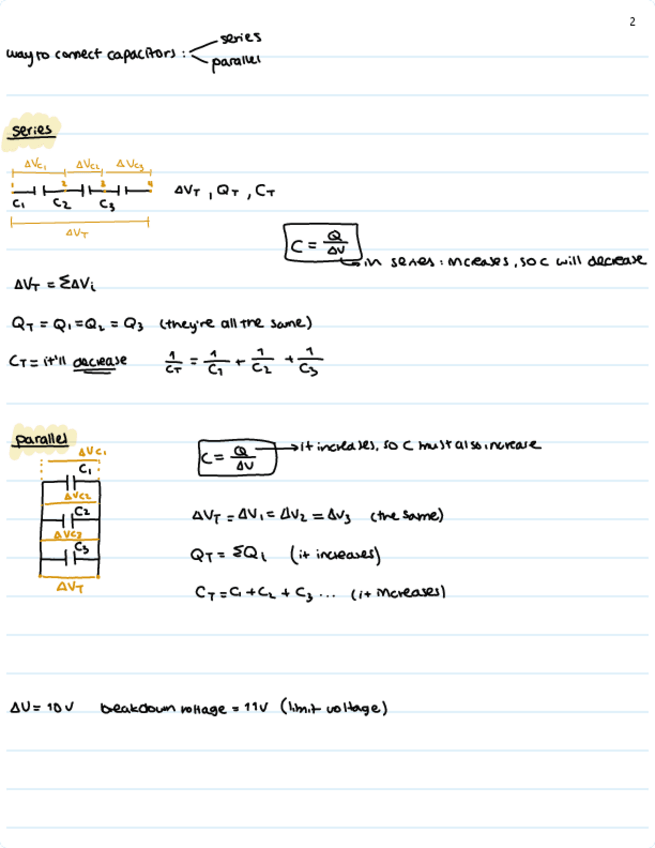 2
way to connect capacitors : series
parallel
series
ΔVC₁ ΔVC₂ ΔVC₃
1 2 3 4
C₁ C₂ C₃
ΔVT
ΔVT , QT , CT
C = Q/ΔV
in series : increases, so C will decrease
ΔVT = ΣΔVi
QT = Q₁ = Q₂ = Q₃ (they're all the same)
CT = it'll decrease 1/CT = 1/C₁ + 1/C₂ + 1/C₃
parallel
ΔVC₁
C₁
ΔVC₂
C₂
ΔVC₃
C₃
ΔVT
C = Q/ΔV → it increases, so C must also increase
ΔVT = ΔV₁ = ΔV₂ = ΔV₃ (the same)
QT = ΣQi (it increases)
CT = C₁ + C₂ + C₃ ... (it increases)
ΔV = 10V beakdown voltage = 11V (limit voltage)